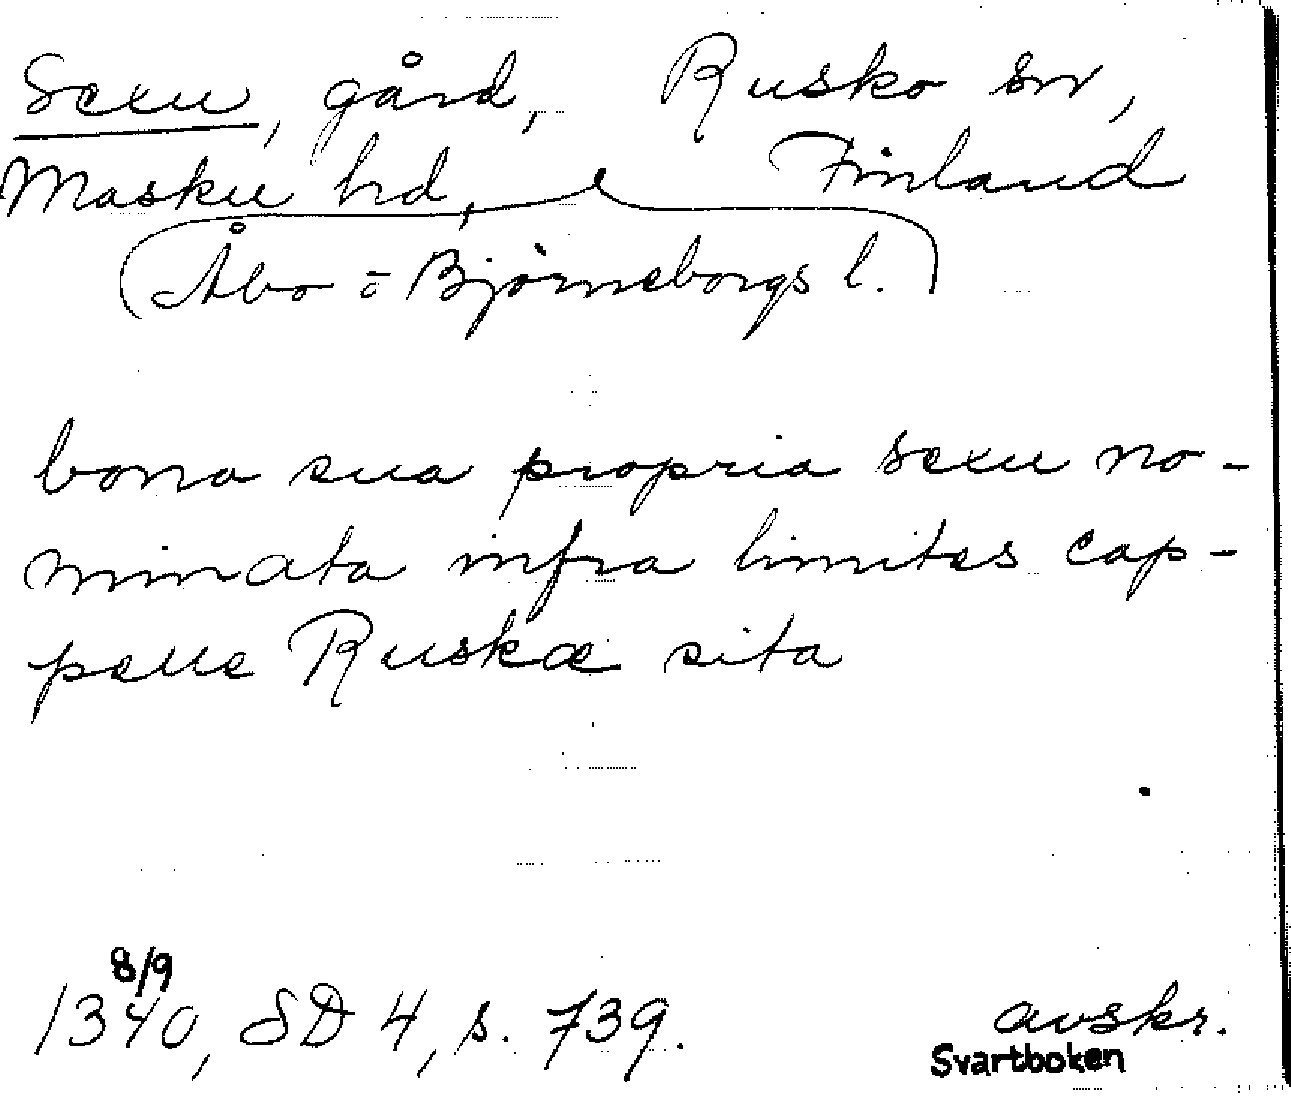 Sexu, gård, Rusko sn,
Masku hd, Finland
(Åbo o Björneborgs l.)
bona sua propria sexu no-
minata infra limites cap-
pelle Ruskæ sita
8/9
1340, SD 4, s. 739. avskr.
Svartboken